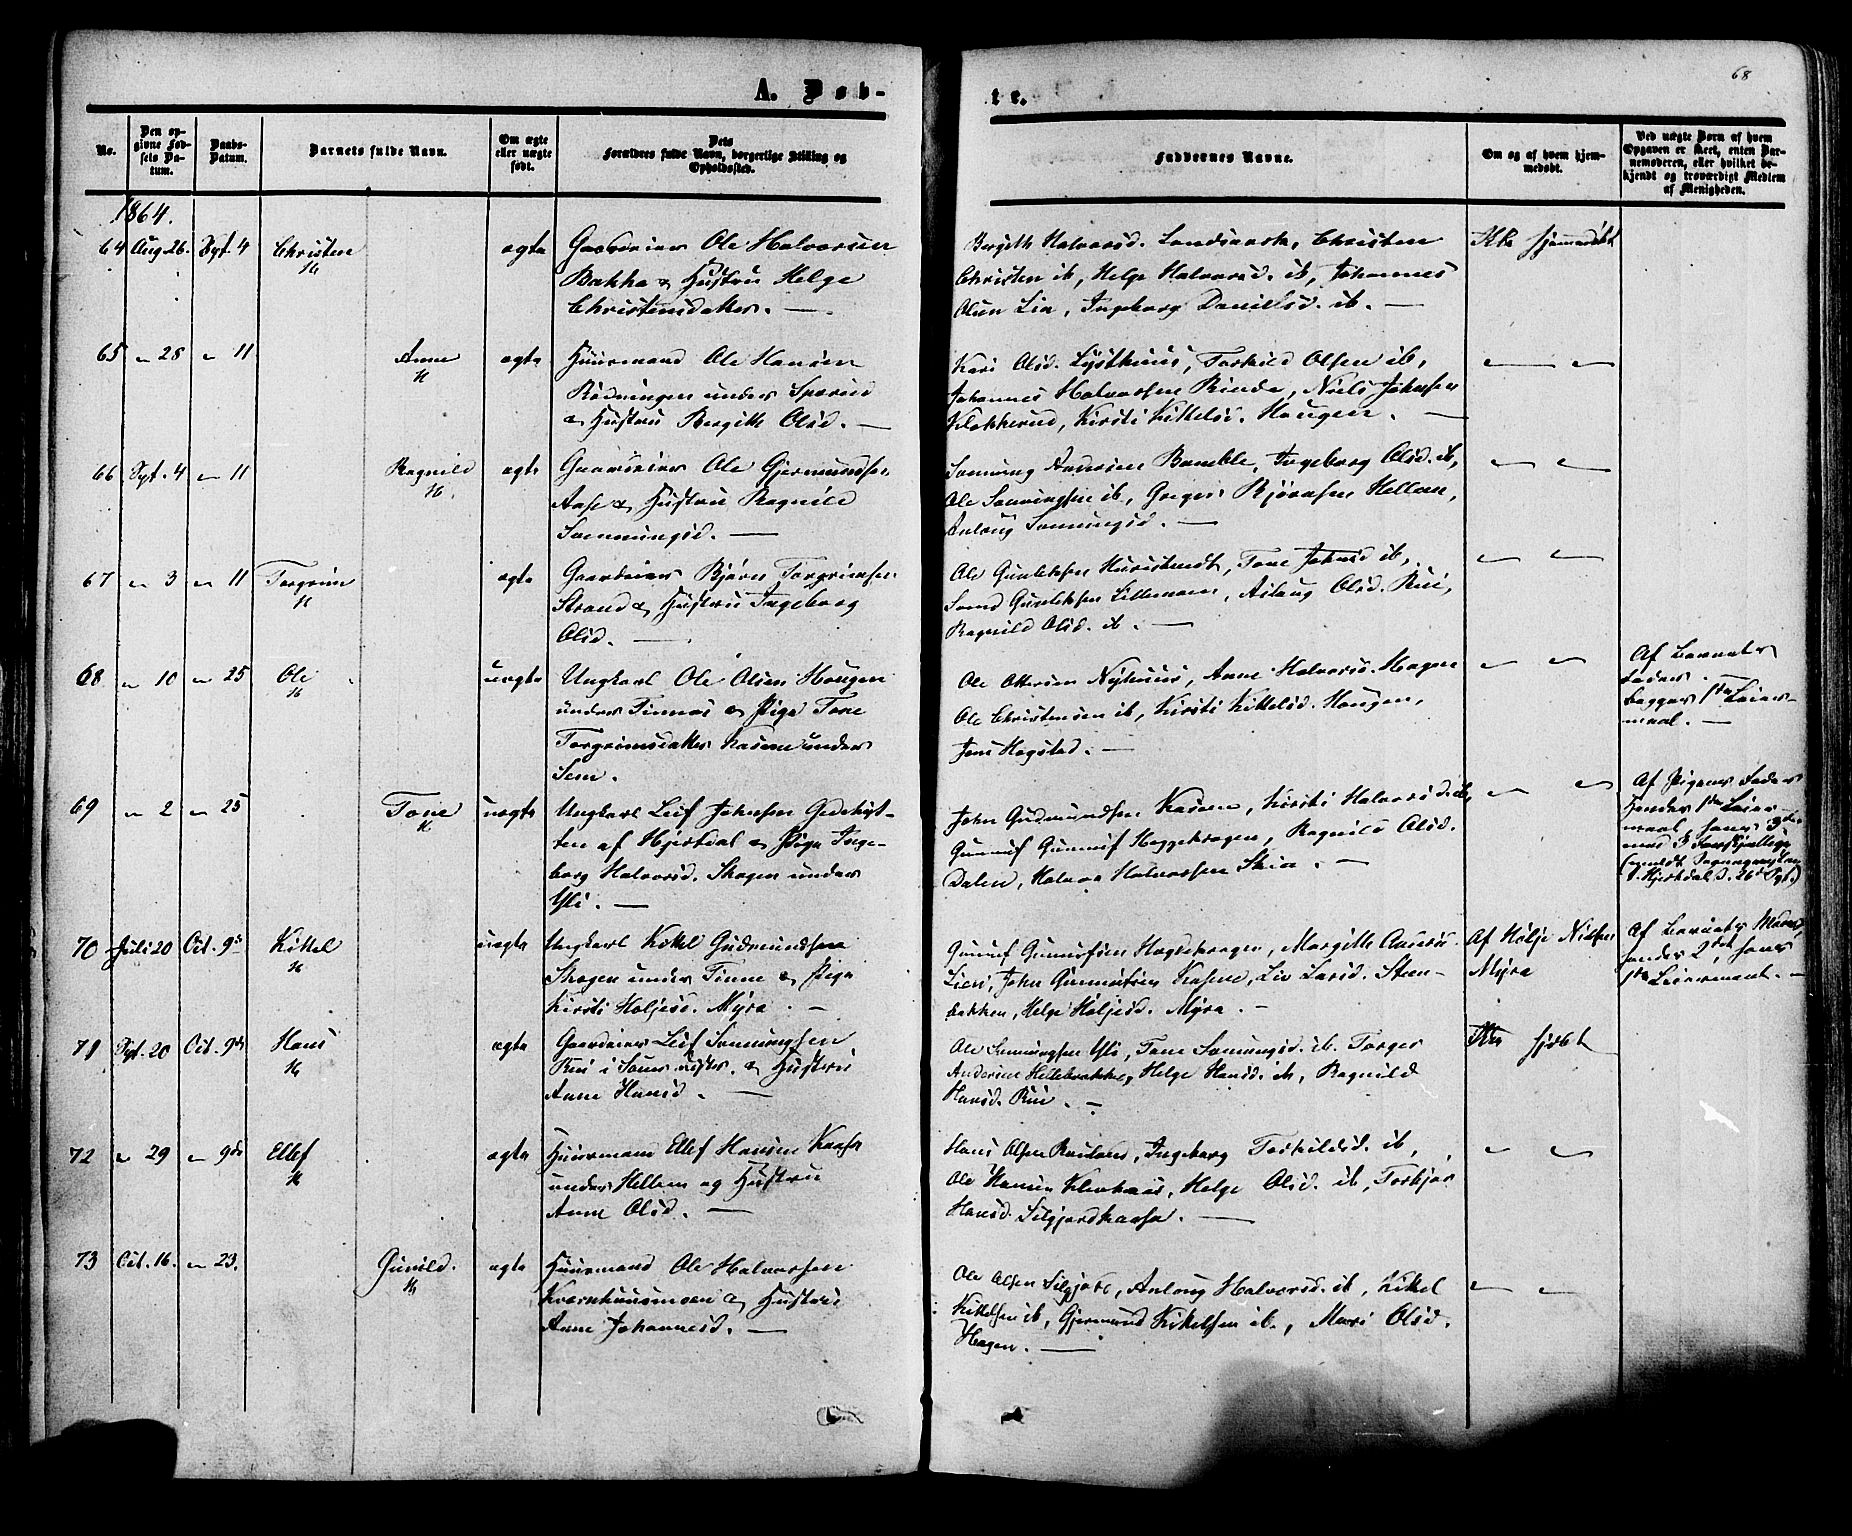 68
A. Døb-
te.
No.
Den op-
givne Fød-
sels Da-
tum.
Daabs-
Datum.
Barnets fulde Navn.
Om ægte
eller uægte
født.
Dets
Forældres fulde Navn, borgerlige Stilling og
Opholdssted.
Faddernes Navne.
Om og af hvem hjem-
medøbt.
Ved uægte Børn af hvem
Opgaven er skeet, enten Bar-
nemoderen, eller hvilket be-
kjendt og troværdigt Medlem
af Menigheden.
1864.
64 Aug. 26. Spt. 4 Christen ægte Gaardeier Ole Halvorsen
Bakka & Hustru Helge
Christensdatter. —
Bergith Halvorsd. Landsverk, Christen
Christen ib, Helge Halvorsd. ib, Johannes
Olsen Lia, Ingeborg Danielsd. ib. —
Ikke hjemmedøbt
65 " 28 " 11 Anne ægte Huusmand Ole Hansen
Rødningen under Sperud
& Hustru Bergith Olsd. —
Kari Olsd. Lysthuus, Torkild Olsen ib,
Johannes Halvorsen Rinde, Niels Johnsen
Klokkerud, Kirsti Kittelsd. Haugen. —
66 Spt. 4 " 11 Ragnild ægte Gaardeier Ole Gjermundsen
Aase & Hustru Ragnild
Sonmungsd. —
Sonmung Andersen Bamble, Ingeborg Olsd. ib,
Ole Sonmungsen ib, Greger Bjørnsen Hellem,
Anlaug Sonmungsd. —
67 " 3 " 11 Torgrim ægte Gaardeier Bjørn Torgrimsen
Strand & Hustru Ingeborg
Olsd. —
Ole Gunleksen, Tone Johnsd ib,
Gunleksen Lillemoen, Aslaug Olsd. Rui,
Ragnild Olsd. ib. —
68 " 10 " 25 Ole uægte Ungkarl Ole Olsen Haugen
under Tinnæs & Pige Tone
Torgrimsdatter Kaasene under
Sem.
Ole Ottersen Nyhuus, Anne Halvorsd. Hagen
Ole Christensen ib, Kirsti Kittelsd. Haugen,
Jens Hogstad. —
Af Barnets
Fader.
begges 1ste Leier-
maal. —
69 " 2 " 25 Tone uægte Ungkarl Leif Johnsen Gedehyt-
ten af Hjertdal & Pige Inge-
borg Halvorsd. Skogen under
Yli. —
John Gudmundsen Kasene, Kirsti Halvorsd. ib,
Gunnuf Gunnuf Heggekragen, Ragnild Olsd.
Dalen, Halvor Halvorsen Skia. —
Af Pigens Fader
hendes 1ste Leier-
maal, hans 3die
med 3 forskjellige
Hjertdal d. 26de Spt.)
70 Juli 20 Oct. 9de Kittel uægte Ungkarl Kittel Gudmundsen
Skogen under Tinne & Pige
Kirsti Holjesd. Myra. —
Gunuf Gunnufsen Heggekragen, Margith
Lien, John Gunmundsen Kasene, Liv Larsd. Steen-
bakken, Helge Holjesd. Myra. —
Af Holje Nilsen
Myra
Af Barnets Moder,
hendes 2det, hans
1ste Leiermaal. —
71 Spt. 20 Oct. 9de Hans ægte Gaardeier Leif Sonmungsen
Rui i & Hustru
Anne Hansd. —
Ole Sonmungsen Yli, Tone Sonmungsd. ib. Torger
Andersen Hellebrakke, Helge Hansd. ib, Ragnild
Hansd. Rui. —
Ikke hjdbt
72 " 29 " 9de Ellef ægte Huusmand Ellef Hansen Kaasa
under Hellem og Hustru
Anne Olsd. —
Hans Olsen Rauland, Ingeborg Torkildsd. ib,
Ole Hansen Klevhuus, Helge Olsd. ib, Torbjør
Hansd. Silgjordkaasa. —
73 Oct. 16. " 23. Gunild. ægte Huusmand Ole Halvorsen
Kvernhuusmoen & Hustru
Anne Johannesd. —
Ole Olsen Silgjord, Anlaug Halvorsd. ib, Kittel
Kittelsen ib, Gjermund Kittelsen ib., Mari Olsd.
Hagen. —